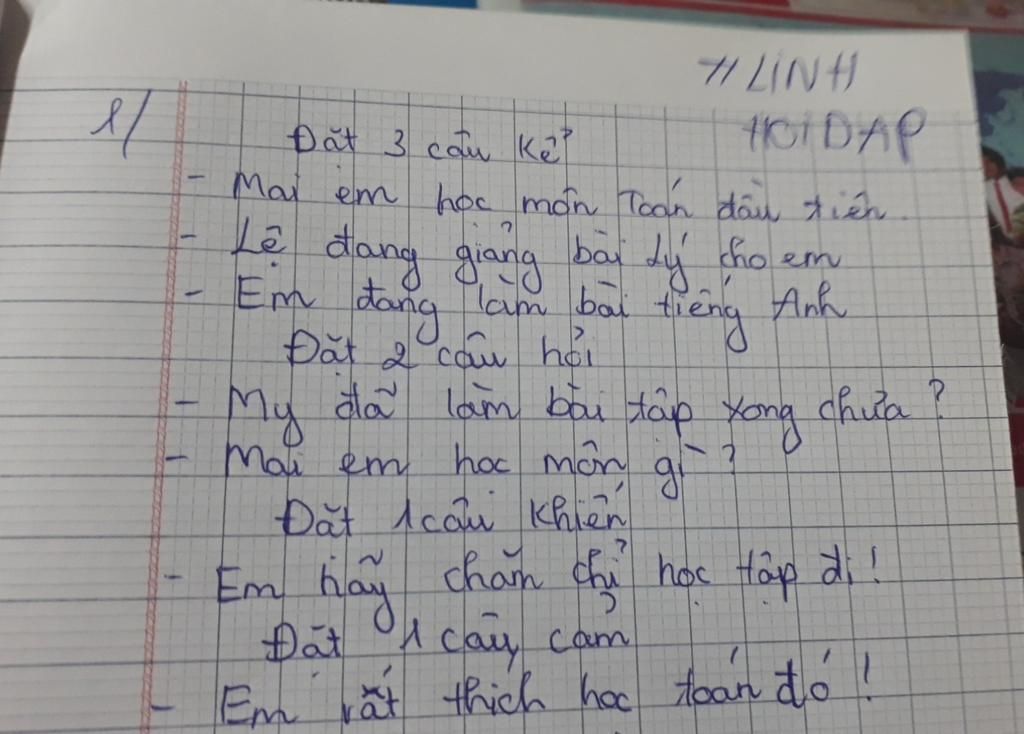 H LINH
HOIDAP
1/
Đặt 3 câu kể
- Mai em học môn Toán đầu tiên.
- Lệ đang giảng bài Lý cho em
- Em đang làm bài tiếng Anh
Đặt 2 câu hỏi
- My đã làm bài tập xong chưa?
- Mai em học môn gì?
Đặt 1 câu khiến
- Em hãy chăm chỉ học tập đi!
Đặt 1 câu cảm
- Em rất thích học toán đó!